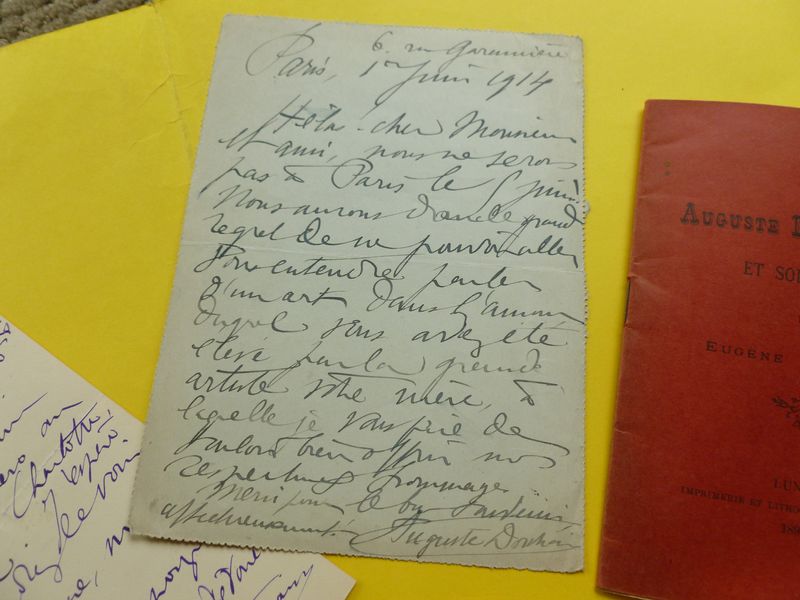 6. rue Garancière
Paris, 1er Juin 1914
Hélas cher Monsieur
et ami, nous ne serons
pas à Paris le 5 juin.
Nous aurons donc le grand
regret de ne pouvoir aller
vous entendre parler
d'un art dans l'amour
duquel vous avez été
élevé par la grande
artiste votre mère, à
laquelle je vous prie de
vouloir bien offrir nos
respectueux hommages.
Merci pour le bon souvenir,
affectueusement
Auguste Dorchain
AUGUSTE D
ET SO
EUGÈNE
LUN
IMPRIMERIE ET LITHO
189
Charlotte,
j'espère